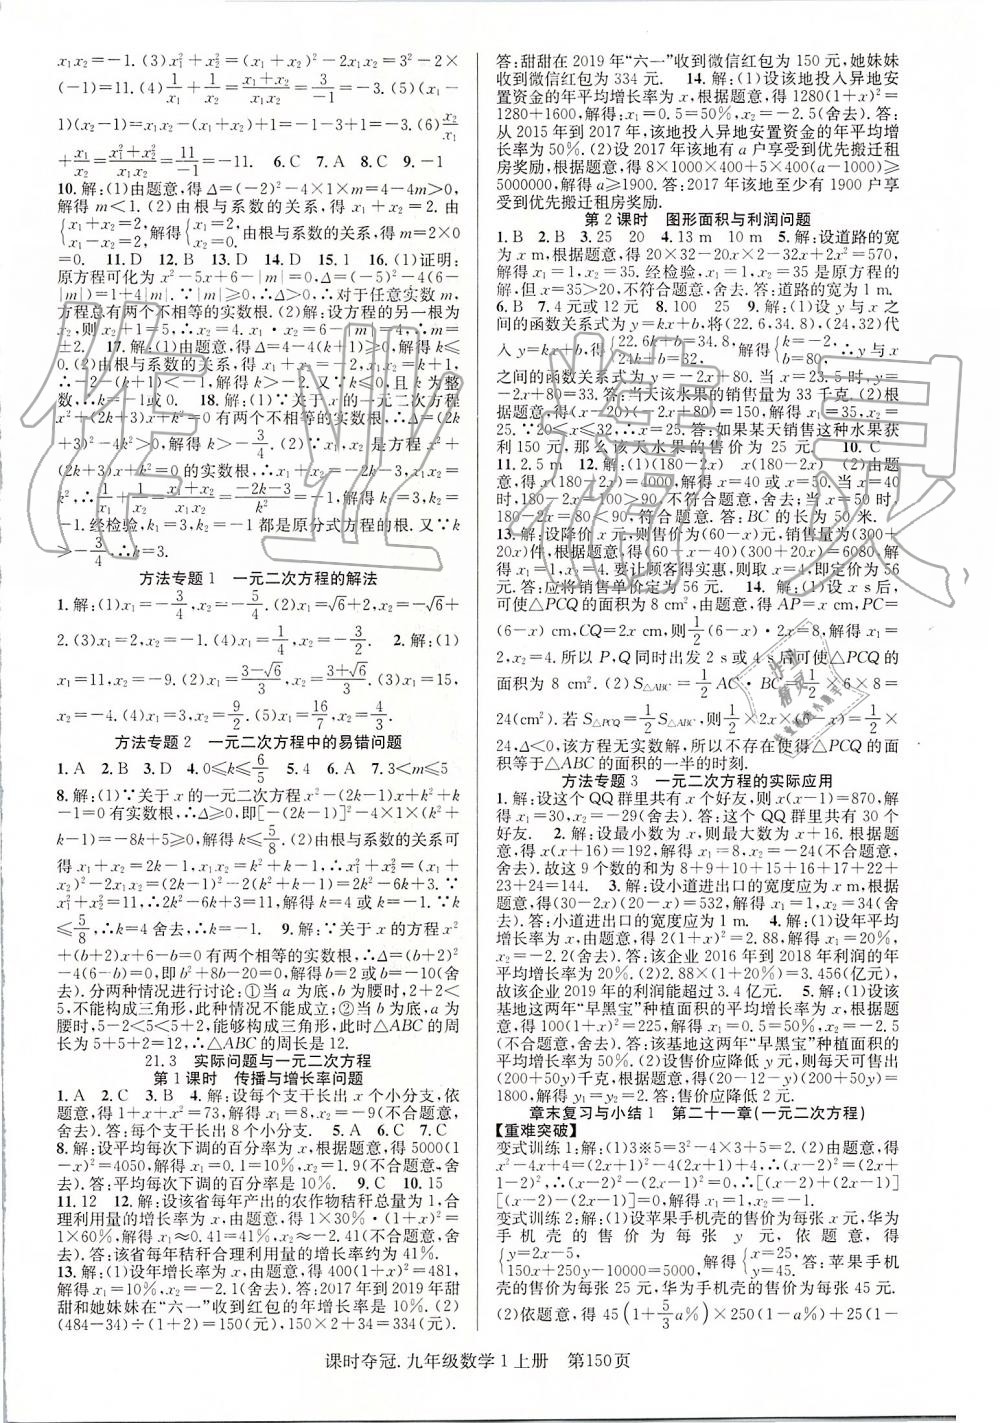 x₁x₂=-1. (3)x₁²+x₂²=(x₁+x₂)²-2x₁x₂=3²-2×
(-1)=11. (4)1/x₁+1/x₂=(x₁+x₂)/(x₁x₂)=3/(-1)=-3. (5)(x₁-
1)(x₂-1)=x₁x₂-(x₁+x₂)+1=-1-3+1=-3. (6)x₂/x₁
+x₁/x₂=(x₁²+x₂²)/(x₁x₂)=11/(-1)=-11. 6. C 7. A 8. C 9. -1
10. 解:(1)由题意,得Δ=(-2)²-4×1×m=4-4m>0,
解得m<1. (2)由根与系数的关系,得x₁+x₂=2. 由
{x₁+x₂=2, x₁-x₂=2, 得{x₁=2, x₂=0, 由根与系数的关系,得m=2×0
=0. 11. D 12. B 13. D 14. D 15. 1 16. (1)证明:
原方程可化为x²-5x+6-|m|=0,∴Δ=(-5)²-4(6-
|m|)=1+4|m|. ∵|m|≥0,∴Δ>0. ∴对于任意实数m,
方程总有两个不相等的实数根. (2)解:设方程的另一根为
x₂,则x₂+1=5,∴x₂=4. x₁·x₂=6-|m|=4,∴m=
±2. 17. 解:(1)由题意,得Δ=4-4(k+1)≥0,解得k≤
0. (2)由根与系数的关系,得x₁+x₂=-2,x₁x₂=k+1,
∴-2-(k+1)<-1. 解得k>-2. 又∵k≤0,且k为整
数,∴k=-1或0. 18. 解:(1)∵关于x的一元二次方程
x²+(2k+3)x+k²=0有两个不相等的实数根,∴Δ=(2k
+3)²-4k²>0,解得k>-3/4. (2)∵x₁,x₂是方程x²+
(2k+3)x+k²=0的实数根,∴x₁+x₂=-2k-3,x₁x₂=
k²,∴1/x₁+1/x₂=(x₁+x₂)/(x₁x₂)=(-2k-3)/k²=-1,解得k₁=3,k₂=
-1. 经检验,k₁=3,k₂=-1都是原分式方程的根. 又∵k
>-3/4,∴k=3.
方法专题1 一元二次方程的解法
1. 解:(1)x₁=-3/4,x₂=-5/4. (2)x₁=√6+2,x₂=-√6+
2. (3)x₁=x₂=-1. (4)x₁=1/4,x₂=-3/4. 2. 解:(1)
x₁=11,x₂=-9. (2)x₁=(3-√6)/3,x₂=(3+√6)/3. (3)x₁=15,
x₂=-4. (4)x₁=3,x₂=9/2. (5)x₁=16/7,x₂=4/3.
方法专题2 一元二次方程中的易错问题
1. A 2. B 3. D 4. 0≤k≤6/5 5. 4 6. A 7. 3<m≤5
8. 解:(1)∵关于x的一元二次方程x²-(2k-1)x+k²+
k-1=0有实数根,∴Δ≥0,即[-(2k-1)]²-4×1×(k²+k-
1)=-8k+5≥0,解得k≤5/8. (2)由根与系数的关系可
得x₁+x₂=2k-1,x₁x₂=k²+k-1,∴x₁²+x₂²=(x₁+
x₂)²-2x₁x₂=(2k-1)²-2(k²+k-1)=2k²-6k+3. ∵
x₁²+x₂²=11,∴2k²-6k+3=11,解得k=4或k=-1. ∵k
≤5/8,∴k=4舍去,∴k=-1. 9. 解:∵关于x的方程x²
+(b+2)x+6-b=0有两个相等的实数根,∴Δ=(b+2)²
-4(6-b)=0,即b²+8b-20=0,解得b=2或b=-10(舍
去). 分两种情况进行讨论:①当a为底,b为腰时,2+2<
5,不能构成三角形,此种情况不成立;②当b为底,a为
腰时,5-2<5<5+2,能够构成三角形,此时△ABC的周
长为2+5+5=12. ∴△ABC的周长是12.
21.3 实际问题与一元二次方程
第1课时 传播与增长率问题
1. A 2. C 3. B 4. 解:设每个支干长出x个小分支,依
题意,得1+x+x²=73,解得x₁=8,x₂=-9(不合题意,舍
去). 答:每个支干长出8个小分支. 5. A 6. C 7. C
8. 解:设平均每次下调的百分率为x,根据题意,得5000(1
-x)²=4050,解得x₁=0.1=10%,x₂=1.9(不合题意,舍
去). 答:平均每次下调的百分率是10%. 9. C 10. 15
11. 12 12. 解:设该省每年产出的农作物秸秆总量为1,合
理利用量的增长率为x,由题意,得1×30%·(1+x)²=
1×60%,解得x₁≈0.41=41%,x₂≈-2.41(不合题意,舍去).
答:该省每年秸秆合理利用量的增长率约为41%.
13. 解:(1)设增长率是x,由题意,得400(1+x)²=484,
解得x₁=10%,x₂=-2.1(舍去). 答:2017年到2019年甜
甜和她妹妹在“六一”收到红包的年增长率是10%. (2)
(484-34)÷(1+2)=150(元),150×2+34=334(元).
答:甜甜在2019年“六一”收到微信红包为150元,她妹妹
收到微信红包为334元. 14. 解:(1)设该地投入异地安
置资金的年平均增长率为x,根据题意,得1280(1+x)²=
1280+1600,解得:x₁=0.5=50%,x₂=-2.5(舍去). 答:
从2015年到2017年,该地投入异地安置资金的年平均增
长率为50%. (2)设2017年该地有a户享受到优先搬迁租
房奖励,根据题意,得8×1000×400+5×400(a-1000)≥
5000000,解得a≥1900. 答:2017年该地至少有1900户享
受到优先搬迁租房奖励.
第2课时 图形面积与利润问题
1. B 2. B 3. 25 20 4. 13 m 10 m 5. 解:设道路的宽
为x m,根据题意,得20×32-20x×2-32x+2x²=570,
解得x₁=1,x₂=35. 经检验,x₁=1,x₂=35是原方程的
解,但x=35>20,不符合题意,舍去. 答:道路的宽为1 m.
6. B 7. 4元或12元 8. 100 25 9. 解:(1)设y与x之
间的函数关系式为y=kx+b,将(22.6,34.8),(24,32)代
入y=kx+b,得{22.6k+b=34.8, 24k+b=32, 解得{k=-2, b=80, ∴y与x
之间的函数关系式为y=-2x+80. 当x=23.5时,y=
-2x+80=33. 答:当天该水果的销售量为33千克. (2)根
据题意,得(x-20)(-2x+80)=150,解得x₁=35,x₂=
25. ∵20≤x≤32,∴x=25. 答:如果某天销售这种水果获
利150元,那么该天水果的售价为25元. 10. C
11. 2.5 m 12. 解:(1)(180-2x) x(180-2x) (2)由题
意,得x(180-2x)=4000,解得x=40或x=50. 当x=40
时,180-2x=100>90,不符合题意,舍去;当x=50时,
180-2x=80<90,符合题意. 答:BC的长为50米.
13. 解:设降价x元,则售价为(60-x)元,销售量为(300+
20x)件,根据题意,得(60-x-40)(300+20x)=6080,解
得x₁=1,x₂=4. 要让顾客得实惠,则x=4,即定价为56
元. 答:应将销售单价定为56元. 14. 解:(1)设x s后,
可使△PCQ的面积为8 cm²,由题意,得AP=x cm,PC=
(6-x) cm,CQ=2x cm,则1/2(6-x)·2x=8,解得x₁=
2,x₂=4. 所以P,Q同时出发2 s或4 s后可使△PCQ的
面积为8 cm². (2)S△ABC=1/2AC·BC=1/2×6×8=
24(cm²). 若S△PCQ=1/2S△ABC,则1/2×2x×(6-x)=1/2×
24,Δ<0,该方程无实数解,所以不存在使得△PCQ的面
积等于△ABC的面积的一半的时刻.
方法专题3 一元二次方程的实际应用
1. 解:设这个QQ群里共有x个好友,则x(x-1)=870,解
得x₁=30,x₂=-29(舍去). 答:这个QQ群里共有30个
好友. 2. 解:设最小数为x,则最大数为x+16. 根据题意,
得x(x+16)=192,解得x₁=8,x₂=-24(不合题意,
舍去). 故这9个数的和为8+9+10+15+16+17+22+
23+24=144. 3. 解:设小道进出口的宽度应为x m,根据
题意,得(30-2x)(20-x)=532,解得x₁=1,x₂=34(舍
去). 答:小道进出口的宽度应为1 m. 4. 解:(1)设年平均
增长率为x,由题意,得2(1+x)²=2.88,解得x₁=20%,
x₂=-2.2(舍去). 答:该企业2016年到2018年利润的年
平均增长率为20%. (2)2.88(1+20%)=3.456(亿元),
故该企业2019年的利润能超过3.4亿元. 5. 解:(1)设该
基地这两年“早黑宝”种植面积的平均增长率为x,根据题
意,得100(1+x)²=225,解得x₁=0.5=50%,x₂=-2.5
(舍去). 答:该基地这两年“早黑宝”种植面积的
平均增长率为50%. (2)设售价应降低y元,则每天可售出
(200+50y)千克,根据题意,得(20-12-y)(200+50y)=
1800,解得y₁=y₂=2. 答:售价应降低2元.
章末复习与小结1 第二十一章(一元二次方程)
【重难突破】
变式训练1:解:(1)3※5=3²-4×3+5=2. (2)由题意,得
x²-4x+4=(2x+1)²-4(2x+1)+4,∴(x-2)²=(2x+
1-2)²,∴(x-2)²=(2x-1)²,∴[(x-2)+(2x-1)]
[(x-2)-(2x-1)]=0,解得x₁=1,x₂=-1.
变式训练2:解:(1)设苹果手机壳的售价为每张x元,华为
手机壳的售价为每张y元,依题意,得
{y=2x-5, 150x+250y-10000=5000, 解得{x=25, y=45. 答:苹果手机
壳的售价为每张25元,华为手机壳的售价为每张45元.
(2)依题意,得45(1+5/3a%)×250(1-a%)+25
课时夺冠. 九年级数学1上册 第150页